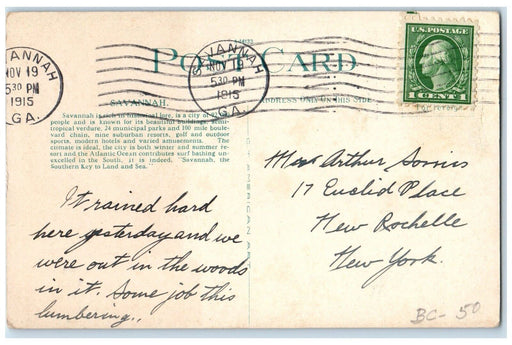 SAVANNAH
NOV 19
530 PM
1915
GA.
POST CARD
SAVANNAH
NOV 19
530 PM
1915
GA.
U.S. POSTAGE
1 CENT 1
SAVANNAH.
ADDRESS ONLY ON THIS SIDE
Savannah is rich in historical lore, is a city of
people and is known for its beautiful buildings, semi-
tropical verdure, 24 municipal parks and 100 mile boule-
vard chain, nine suburban resorts, golf and outdoor
sports, modern hotels and varied amusements. The
climate is ideal, the city is both winter and summer re-
sort and the Atlantic Ocean contributes surf bathing un-
excelled in the South, it is indeed, "Savannah, the
Southern Key to Land and Sea."
It rained hard
here yesterday and we
were out in the woods
in it. Some job this
lumbering.
Arthur
17 Euclid Place
New Rochelle
New York.
BC- 50